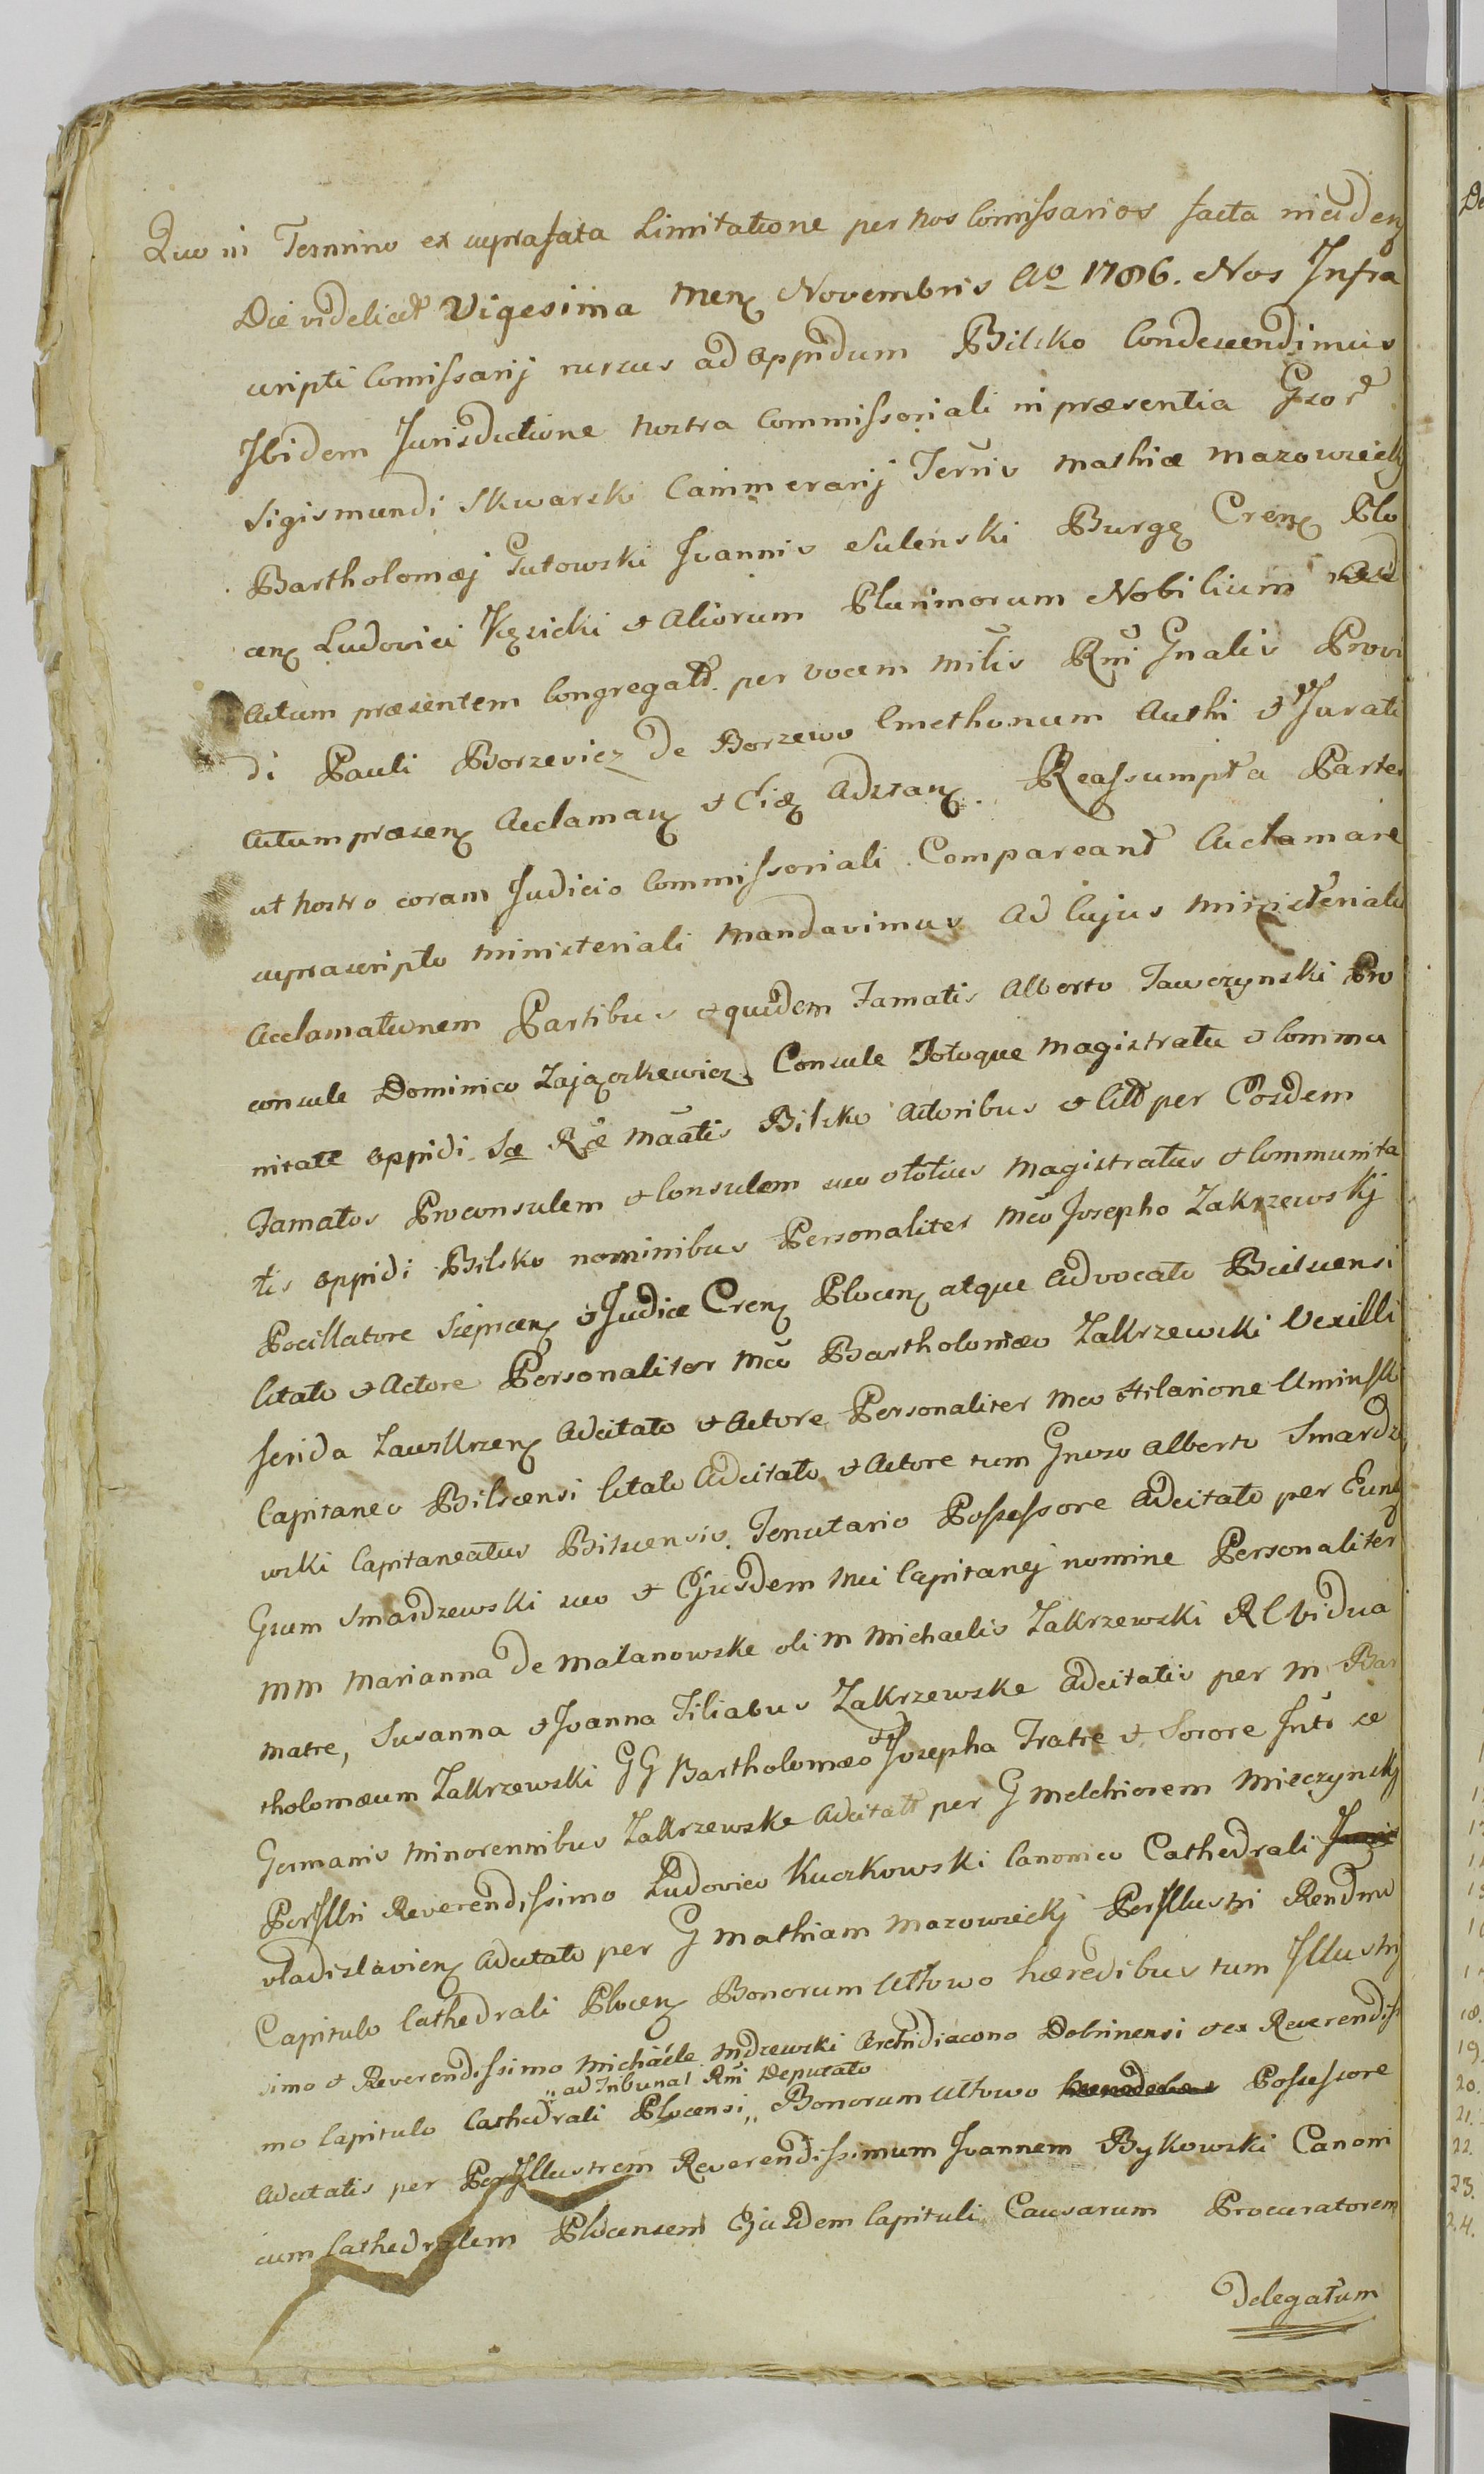 Quo in Termino ex suprafata Limitatione per nos Comissarios facta inciden
Die videlicet Vigesima Men Novembris Ao 1786. Nos Infra
scripti Comissarij rursus ad Oppidum Bilsko Condescendimus
Ibidem Jurisdictione nostra Commissoriali in præsentia Gsor
Sigismundi Skwarski Cammerarij Terris Mathiæ Mazowieckj
Bartholomæj Gutowski Joannis Sulenski Burg Cren Plo
cen Ludovici Kęsicki et Aliorum Plurimorum Nobilium
Actum præsentem Congregatt. per vocem Mlis Rni Gnalis Provi
di Pauli Borzevicz de Borzewo Cmethonum Authi et Jurati
Actum præsen Acclaman et Ciæ Adstan. Reassumpta Partes
ut nostro coram Judicio Commissoriali Compareant Acclamare
suprascripto Ministeriali Mandavimus Ad Cujus Ministerialis
Acclamationem Partibus et quidem Famatis Alberto Tawczynski Pro
consule Dominico Zajączkewicz Consule Totoque Magistratu et Commu
nitate Oppidi Sæ Ræ Maatis Bilsko Actoribus et Citt per Eosdem
Famatos Proconsulem et Consulem suo et totius Magistratus et Communita
tis Oppidi Bilsko nominibus Personaliter Mco Josepho Zakrzewskj
Pocillatore Sieprcen et Judice Cren Plocen atque Advocato Bielscensi
Citato et Actore Personaliter Mco Bartholomæo Zakrzewski Vexilli
ferida Zawskrzen Adcitato et Actore Personaliter Mco Hilarione Uminski
Capitaneo Bilscensi Citato Adcitato et Actore tum Gneso Alberto Smardze
wski Capitaneatus Bilscensis Tenutario Possessore Adcitato per Eund
Gsum Smardzewski suo et Ejusdem Mci Capitanej nomine Personaliter
MM Marianna de Malanowske olim Michaelis Zakrzewski R C Vidua
Matre, Susanna et Joanna Filiabus Zakrzewske Adcitatis per M Bar
tholomæum Zakrzewski GG Bartholomæo et Josepha Fratre et Sorore Intr se
Germanis Minorennibus Zakrzewske Adcitatt per G Melchiorem Mieczynskj
Perjllri Reverendissimo Ludovico Kuczkowski Canonico Cathedrali
vladislavien Adcitato per G Mathiam Mazowieckj Perjllustri Rendmo
Capitulo Cathedrali Plocen Bonorum Ułtowo hæredibus tum Jllustrj
simo et Reverendissimo Michaele Mdzewski Archidiacono Dobrinensi et ex Reverendiss
„ ad Tribunal Rni Deputato
mo Capitulo Cathedrali Plocensi „ Bonorum Ułtowo Possessore
Adcitatis per Perjllustrem Reverendissimum Joannem Bykowski Canoni
cum Cathedralem Plocensem Ejusdem Capituli Causarum Procuratorem
Delegatum
18.
19.
20.
21.
22.
23.
24.